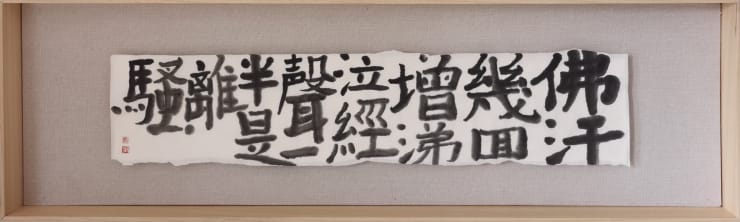 佛汗
幾回
增涕
泣經
聲一
半是
離
騷